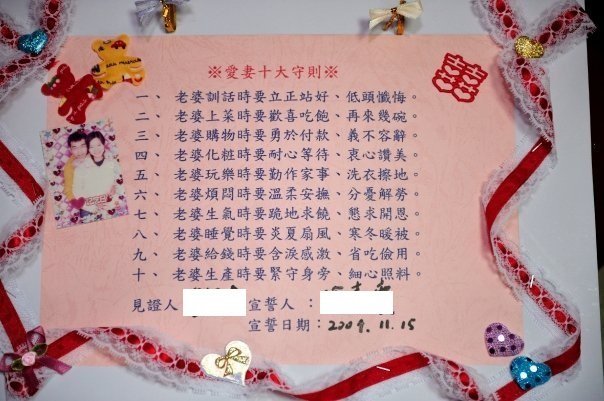 ※愛妻十大守則※
一、 老婆訓話時要立正站好、低頭懺悔。
二、 老婆上菜時要歡喜吃飽、再來幾碗。
三、 老婆購物時要勇於付款、義不容辭。
四、 老婆化粧時要耐心等待、衷心讚美。
五、 老婆玩樂時要勤作家事、洗衣擦地。
六、 老婆煩悶時要溫柔安撫、分憂解勞。
七、 老婆生氣時要跪地求饒、懇求開恩。
八、 老婆睡覺時要炎夏扇風、寒冬暖被。
九、 老婆給錢時要含淚感激、省吃儉用。
十、 老婆生產時要緊守身旁、細心照料。
見證人 宣誓人 :
宣誓日期:2009.11.15
囍